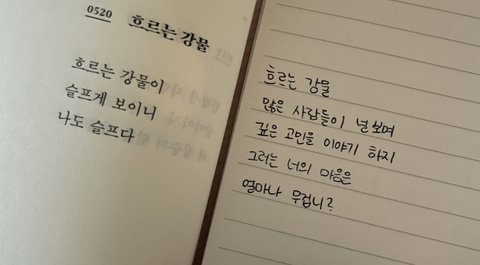 0520 흐르는 강물
흐르는 강물이
슬프게 보이니
나도 슬프다
흐르는 강물
많은 사람들이 널 보며
깊은 고민을 이야기 하지
그러는 너의 마음은
얼마나 무겁니?